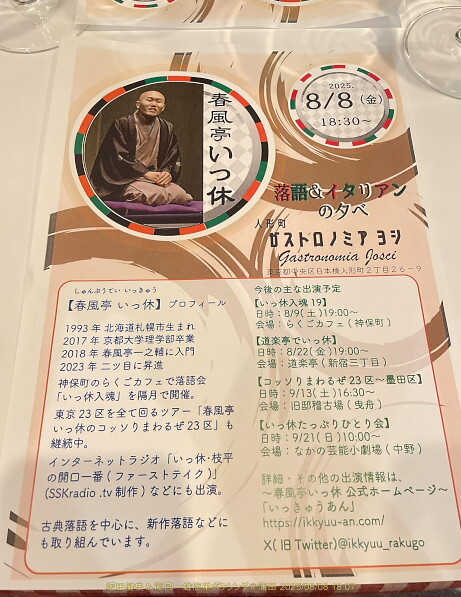 2025.
8/8(金)
18:30〜
春風亭いっ休
落語&イタリアン
の夕べ
人形町
ガストロノミア ヨシ
Gastronomia Josci
東京都中央区日本橋人形町2丁目26−9
しゅんぷうてい いっきゅう
【春風亭 いっ休】プロフィール
1993年 北海道札幌市生まれ
2017年 京都大学理学部卒業
2018年 春風亭一之輔に入門
2023年 二ツ目に昇進
神保町のらくごカフェで落語会
「いっ休入魂」を隔月で開催。
東京23区を全て回るツアー「春風亭
いっ休のコッソリまわるぜ23区」も
継続中。
インターネットラジオ「いっ休・枝平
の開口一番(ファーストテイク)」
(SSKradio .tv 制作)などにも出演。
古典落語を中心に、新作落語などに
も取り組んでいます。
今後の主な出演予定
【いっ休入魂 19】
日時:8/9(土)19:00〜
会場:らくごカフェ(神保町)
【道楽亭でいっ休】
日時:8/22(金)19:00〜
会場:道楽亭(新宿三丁目)
【コッソリまわるぜ23区〜墨田区】
日時:9/13(土)16:30〜
会場:旧邸稽古場(曳舟)
【いっ休たっぷりひとり会】
日時:9/21(日)10:00〜
会場:なかの芸能小劇場(中野)
詳細・その他の出演情報は、
〜春風亭いっ休 公式ホームページ〜
「いっきゅうあん」
https://ikkyuu-an.com/
X(旧Twitter)@ikkyuu_rakugo